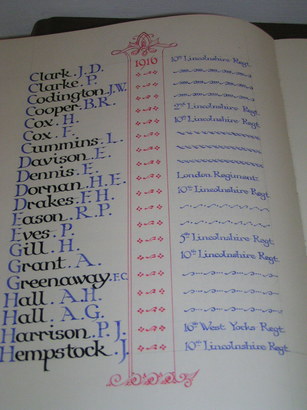 1916
Clark. J.D. 10th Lincolnshire Regt.
Clarke. P.
Codington. J.W.
Cooper. B.R. 2nd Lincolnshire Regt.
Cox. H. 10th Lincolnshire Regt.
Cox. F.
Cummins. L.
Davison. E.
Dennis. E. London Regiment.
Dornan. H.E. 10th Lincolnshire Regt.
Drakes. F.H.
Eason. R.P.
Eves. P. 5th Lincolnshire Regt.
Gill. H. 10th Lincolnshire Regt.
Grant. A.
Greenaway. F.C.
Hall. A.H.
Hall. A.G.
Harrison. P.J. 16th West Yorks Regt.
Hempstock. J. 10th Lincolnshire Regt.